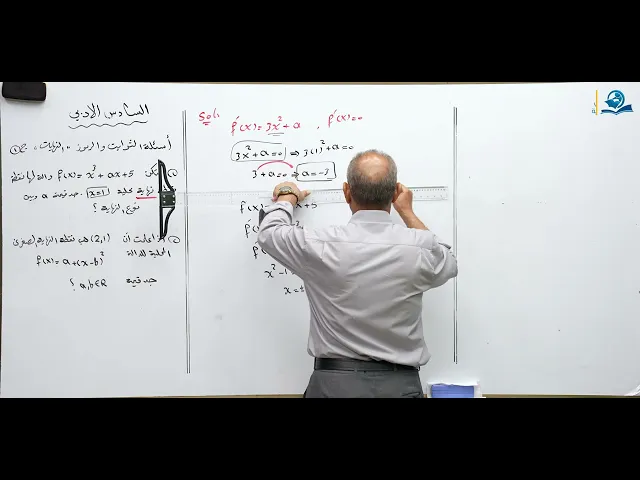 السادس الأدبي
أسئلة الثوابت والرموز "النهايات" ج ①
① لتكن f(x) = x³ + ax + 5 والدالة نقطة
نهاية محلية x=1 . جد قيمة a وبين
نوع النهاية ؟
② إذا علمت أن (2,1) هي نقطة النهاية الصغرى
المحلية للدالة f(x) = a + (x-b)²
جد قيمة a, b ∈ R ؟
Sol:
f′(x) = 3x² + a , f′(x) = 0
3x² + a = 0 ⇒ 3(1)² + a = 0
3 + a = 0 ⇒ a = -3
f(x) x + 5
x² - 1
x = ±